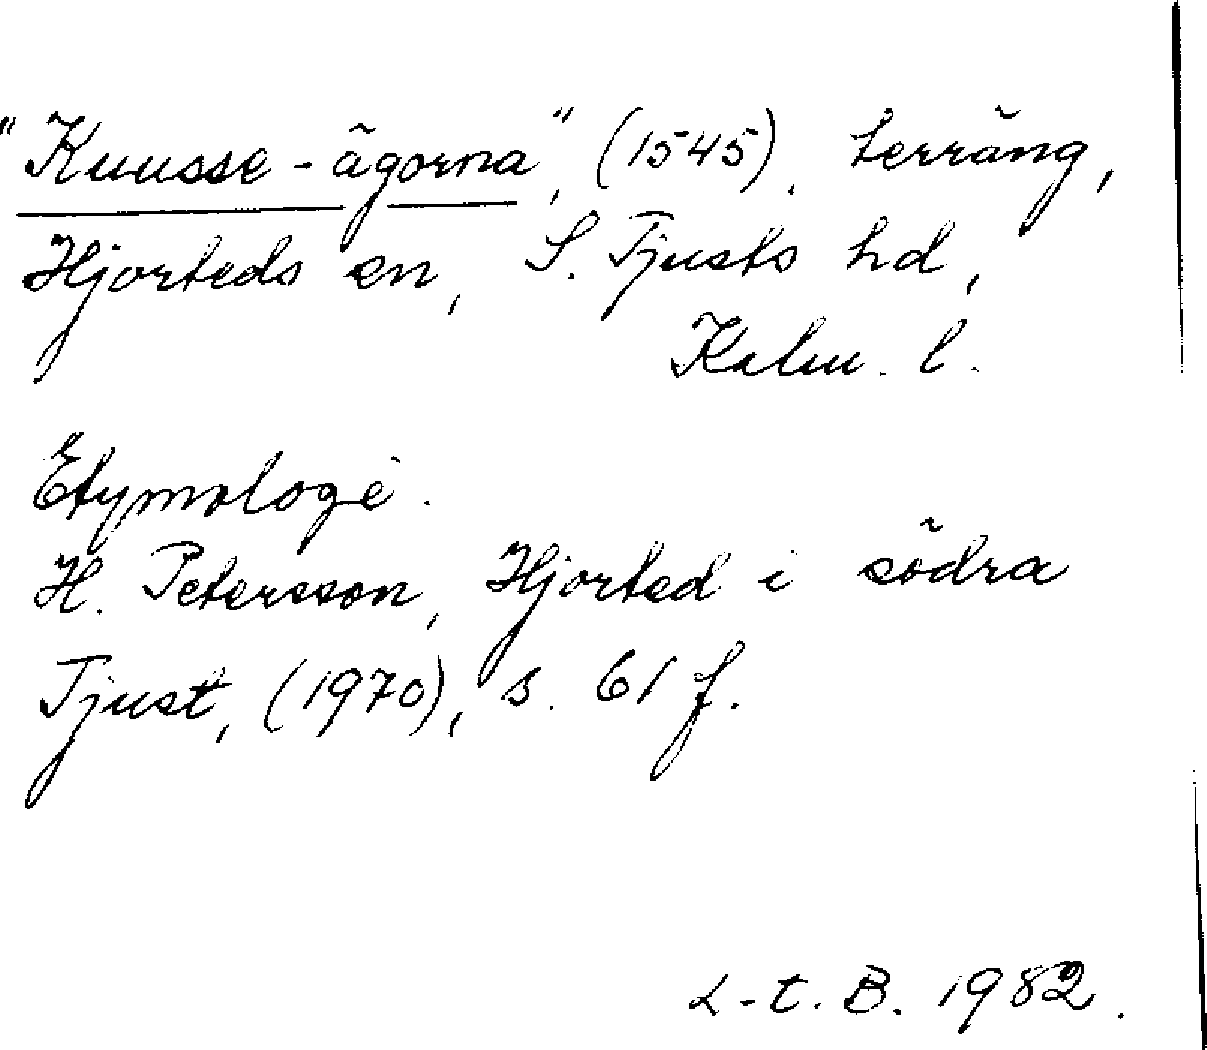 "Kuusse-ägorna", (1545). terräng,
Hjorteds sn, S. Tjusts hd,
Kalm. l.
Etymologi.
H. Petersson, Hjorted i södra
Tjust, (1970), s. 61 f.
L-t. B. 1982.